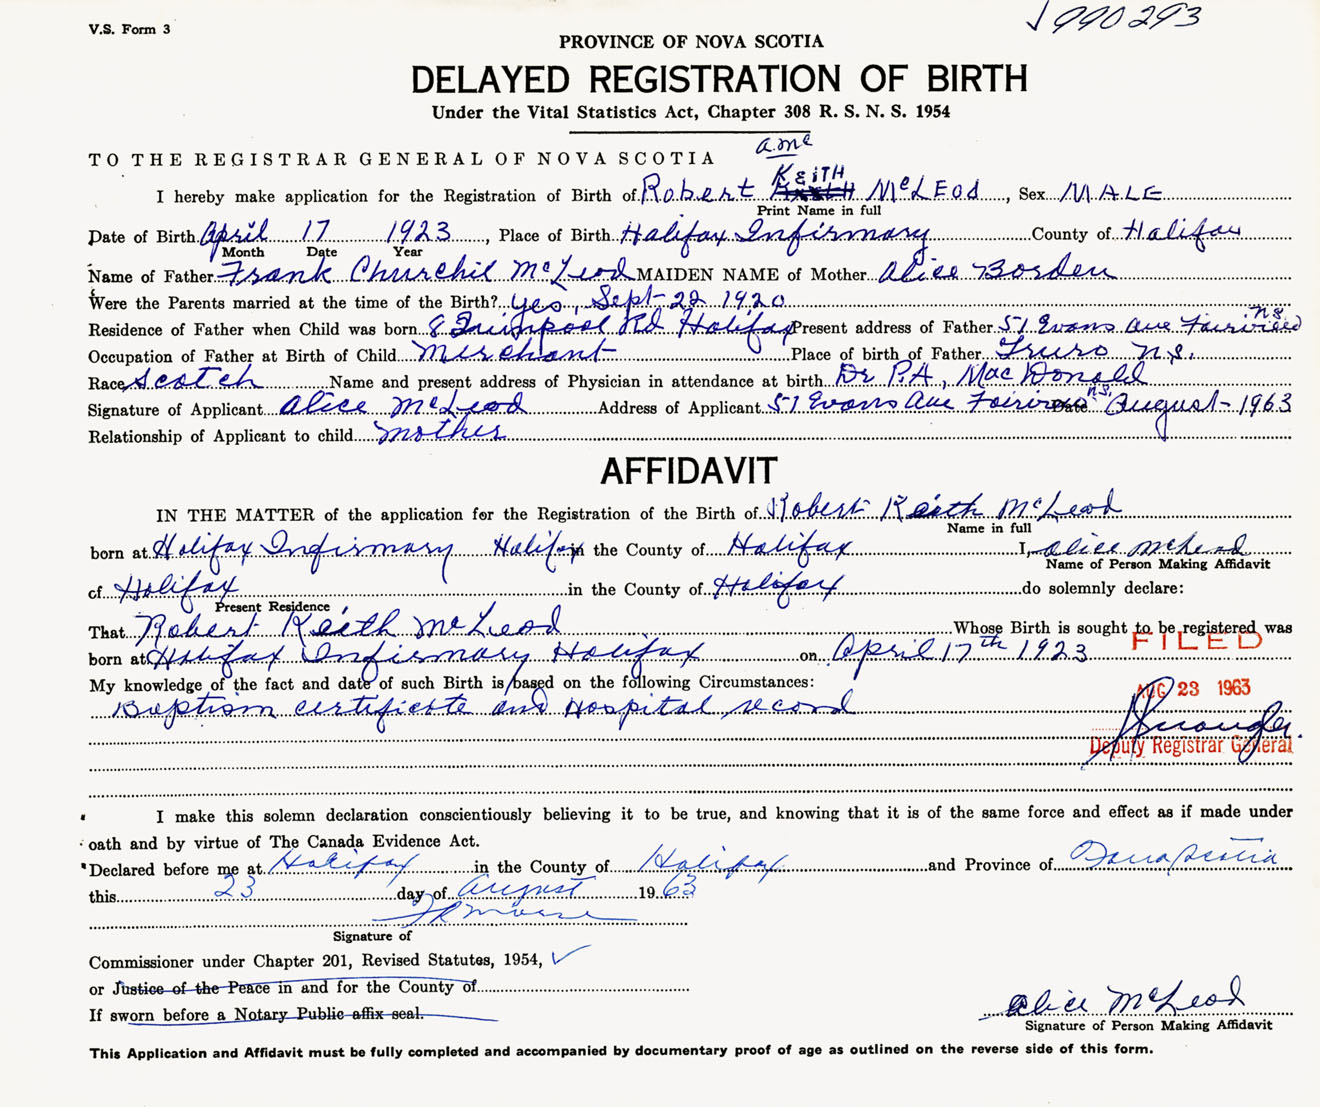 V.S. Form 3
990293
PROVINCE OF NOVA SCOTIA
DELAYED REGISTRATION OF BIRTH
Under the Vital Statistics Act, Chapter 308 R. S. N. S. 1954
TO THE REGISTRAR GENERAL OF NOVA SCOTIA
amc
KEiTH
I hereby make application for the Registration of Birth of Robert McLEod, Sex MALE
Print Name in full
Date of Birth April 17 1923, Place of Birth Halifax Infirmary County of Halifax
Month Date Year
Name of Father Frank Churchil McLeod MAIDEN NAME of Mother Alice Borden
Were the Parents married at the time of the Birth? yes, Sept 22 1920
Residence of Father when Child was born 8 Quinpool Rd Halifax Present address of Father 51 Evans Ave Fairview N.S.
Occupation of Father at Birth of Child Merchant Place of birth of Father Truro N.S.
Race Scotch Name and present address of Physician in attendance at birth Dr P.A, MacDonald
Signature of Applicant Alice McLeod Address of Applicant 51 Evans Ave Fairview N.S. Date August - 1963
Relationship of Applicant to child mother
AFFIDAVIT
IN THE MATTER of the application for the Registration of the Birth of Robert Keith McLeod
Name in full
born at Halifax Infirmary Halifax in the County of Halifax I, Alice McLeod
Name of Person Making Affidavit
of Halifax in the County of Halifax do solemnly declare:
Present Residence
That Robert Keith McLeod Whose Birth is sought to be registered was
born at Halifax Infirmary Halifax on April 17th 1923
FILED
My knowledge of the fact and date of such Birth is based on the following Circumstances:
AUG 23 1963
Baptism certificate and Hospital record
Deputy Registrar General
I make this solemn declaration conscientiously believing it to be true, and knowing that it is of the same force and effect as if made under
oath and by virtue of The Canada Evidence Act.
Declared before me at Halifax in the County of Halifax and Province of Nova Scotia
this 23 day of August 1963
Signature of
Commissioner under Chapter 201, Revised Statutes, 1954, ✓
or Justice of the Peace in and for the County of
If sworn before a Notary Public affix seal.
Alice McLeod
Signature of Person Making Affidavit
This Application and Affidavit must be fully completed and accompanied by documentary proof of age as outlined on the reverse side of this form.